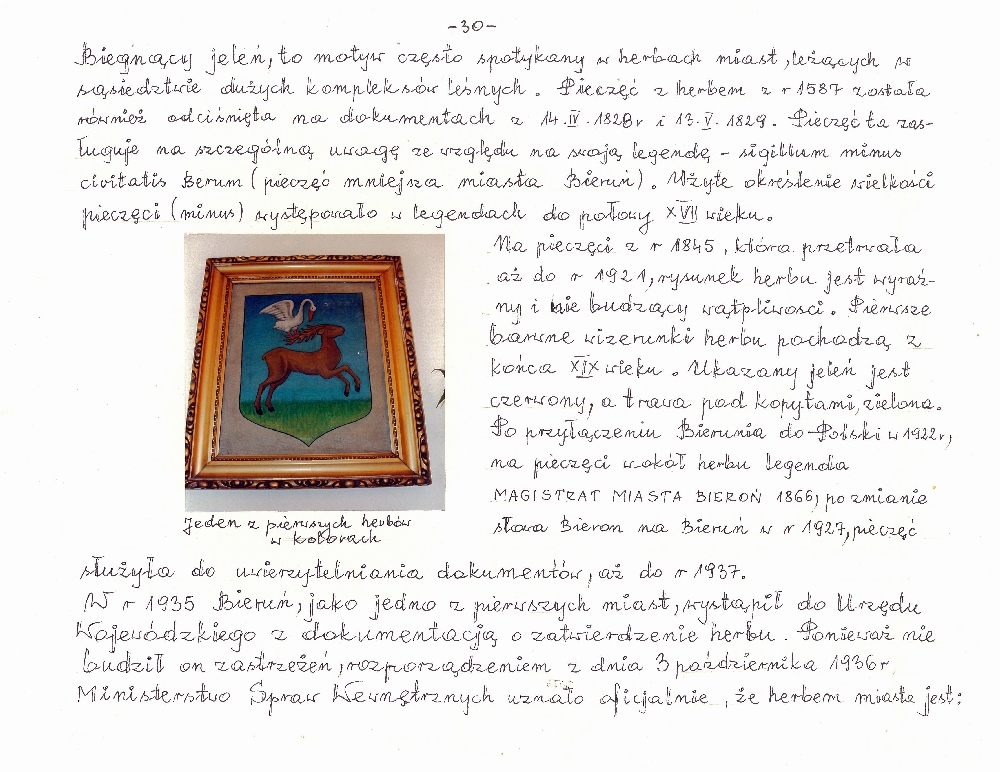 -30-
Biegnący jeleń, to motyw często spotykany w herbach miast, leżących w
sąsiedztwie dużych kompleksów leśnych. Pieczęć z herbem z r 1587 została
również odciśnięta na dokumentach z 14.IV.1828r i 13.V.1829. Pieczęć ta zas-
ługuje na szczególną uwagę ze względu na swoją legendę - sigillum minus
civitatis Berum (pieczęć mniejsza miasta Bieruń). Użyte określenie wielkości
pieczęci (minus) występowało w legendach do połowy XVII wieku.
Na pieczęci z r 1845, która przetrwała
aż do r 1921, rysunek herbu jest wyraź-
ny i nie budzący wątpliwosci. Pierwsze
barwne wizerunki herbu pochodzą z
końca XIX wieku. Ukazany jeleń jest
czerwony, a trawa pod kopytami, zielona.
Po przyłączeniu Bierunia do Polski w 1922r,
na pieczęci wokół herbu legenda
MAGISTRAT MIASTA BIEROŃ 1866, po zmianie
słowa Bieron na Bieruń w r 1927, pieczęć
Jeden z pierwszych herbów
w kolorach
służyła do uwierzytelniania dokumentów, aż do r 1937.
W r 1935 Bieruń, jako jedno z pierwszych miast, wystąpił do Urzędu
Wojewódzkiego z dokumentacją o zatwierdzenie herbu. Ponieważ nie
budził on zastrzeżeń, rozporządzeniem z dnia 3 października 1936r
Ministerstwo Spraw Wewnętrznych uznało oficjalnie, że herbem miasta jest: